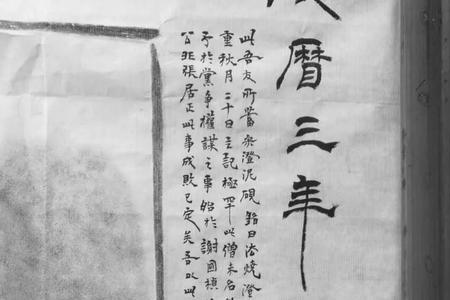 曆三年
此吾友所蓄澄泥硯銘曰法燒澄
重秋月二十日立記極罕此僧未名
予於黨爭權謀之事始於謝國楨
公非張居正此事成敗已定矣吾以此